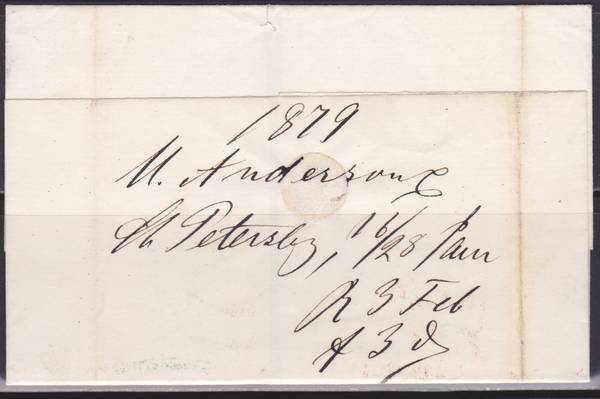 1879
M. Anderson &
St Petersbg, 16/28 Jan
R 3 Feb
A 3 d